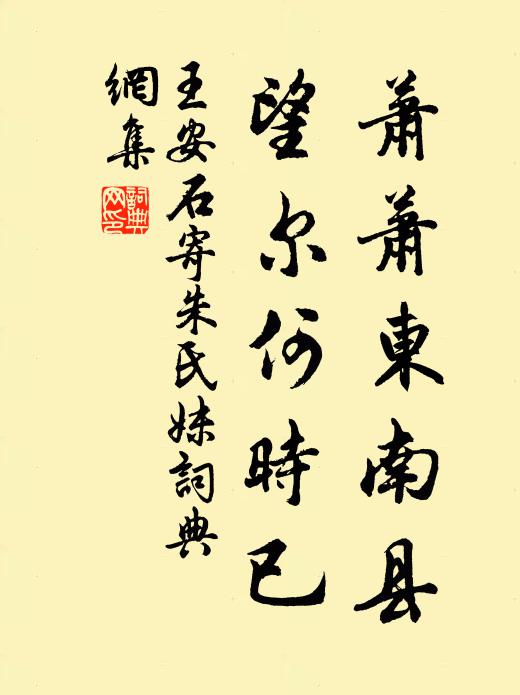 蕭蕭東南县
望尔何時已
王安石寄朱氏妹詞典
網集
詞典
网印